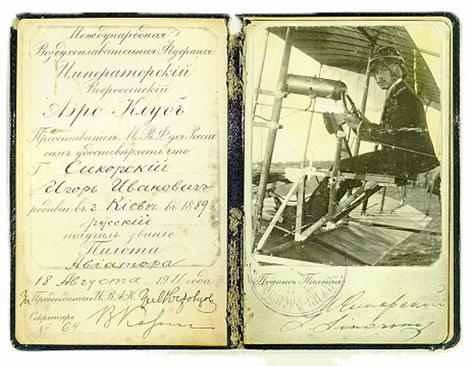 Международная
Воздухоплавательная Федерація
Императорскій
Всероссійскій
Аэро Клубъ
удостовѣряетъ что
Г. Сикорскій
Игорь Ивановичъ
родивш въ г. Кіевѣ въ 1889 г.
русскій
получилъ званіе
Пилота
Авіатора
18 Августа 1911 года
Секретарь
№ 64
Подпись Пилота
Сикорскій